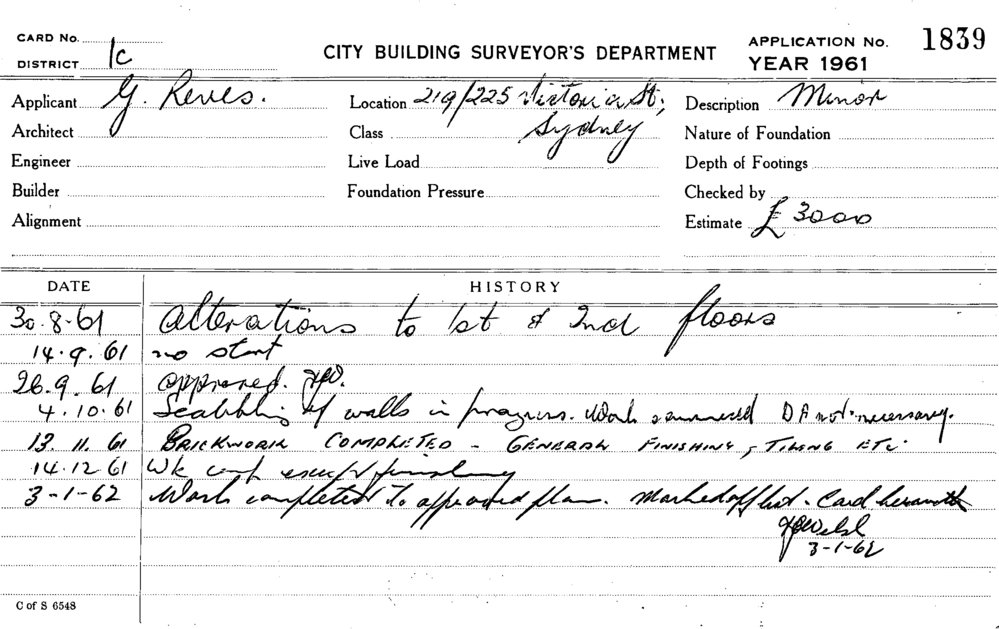 CARD No.
DISTRICT 1c
CITY BUILDING SURVEYOR'S DEPARTMENT
APPLICATION No. 1839
YEAR 1961
Applicant G. Reves.
Location 219/225 Victoria St;
Sydney
Description Minor
Architect
Class
Nature of Foundation
Engineer
Live Load
Depth of Footings
Builder
Foundation Pressure
Checked by
Alignment
Estimate £ 3000
DATE HISTORY
30.8.61 Alterations to 1st & 2nd floors
14.9.61 no start
26.9.61 approved.
4.10.61 Scabbling of walls in progress. Work DA not necessary.
13.11.61 BRICKWORK COMPLETED - GENERAL FINISHING, TILING ETC.
14.12.61 Wk comp except finishing
3-1-62 Work completed to approved plan. Marked off list. Card herewith
3-1-62
C of S 6548